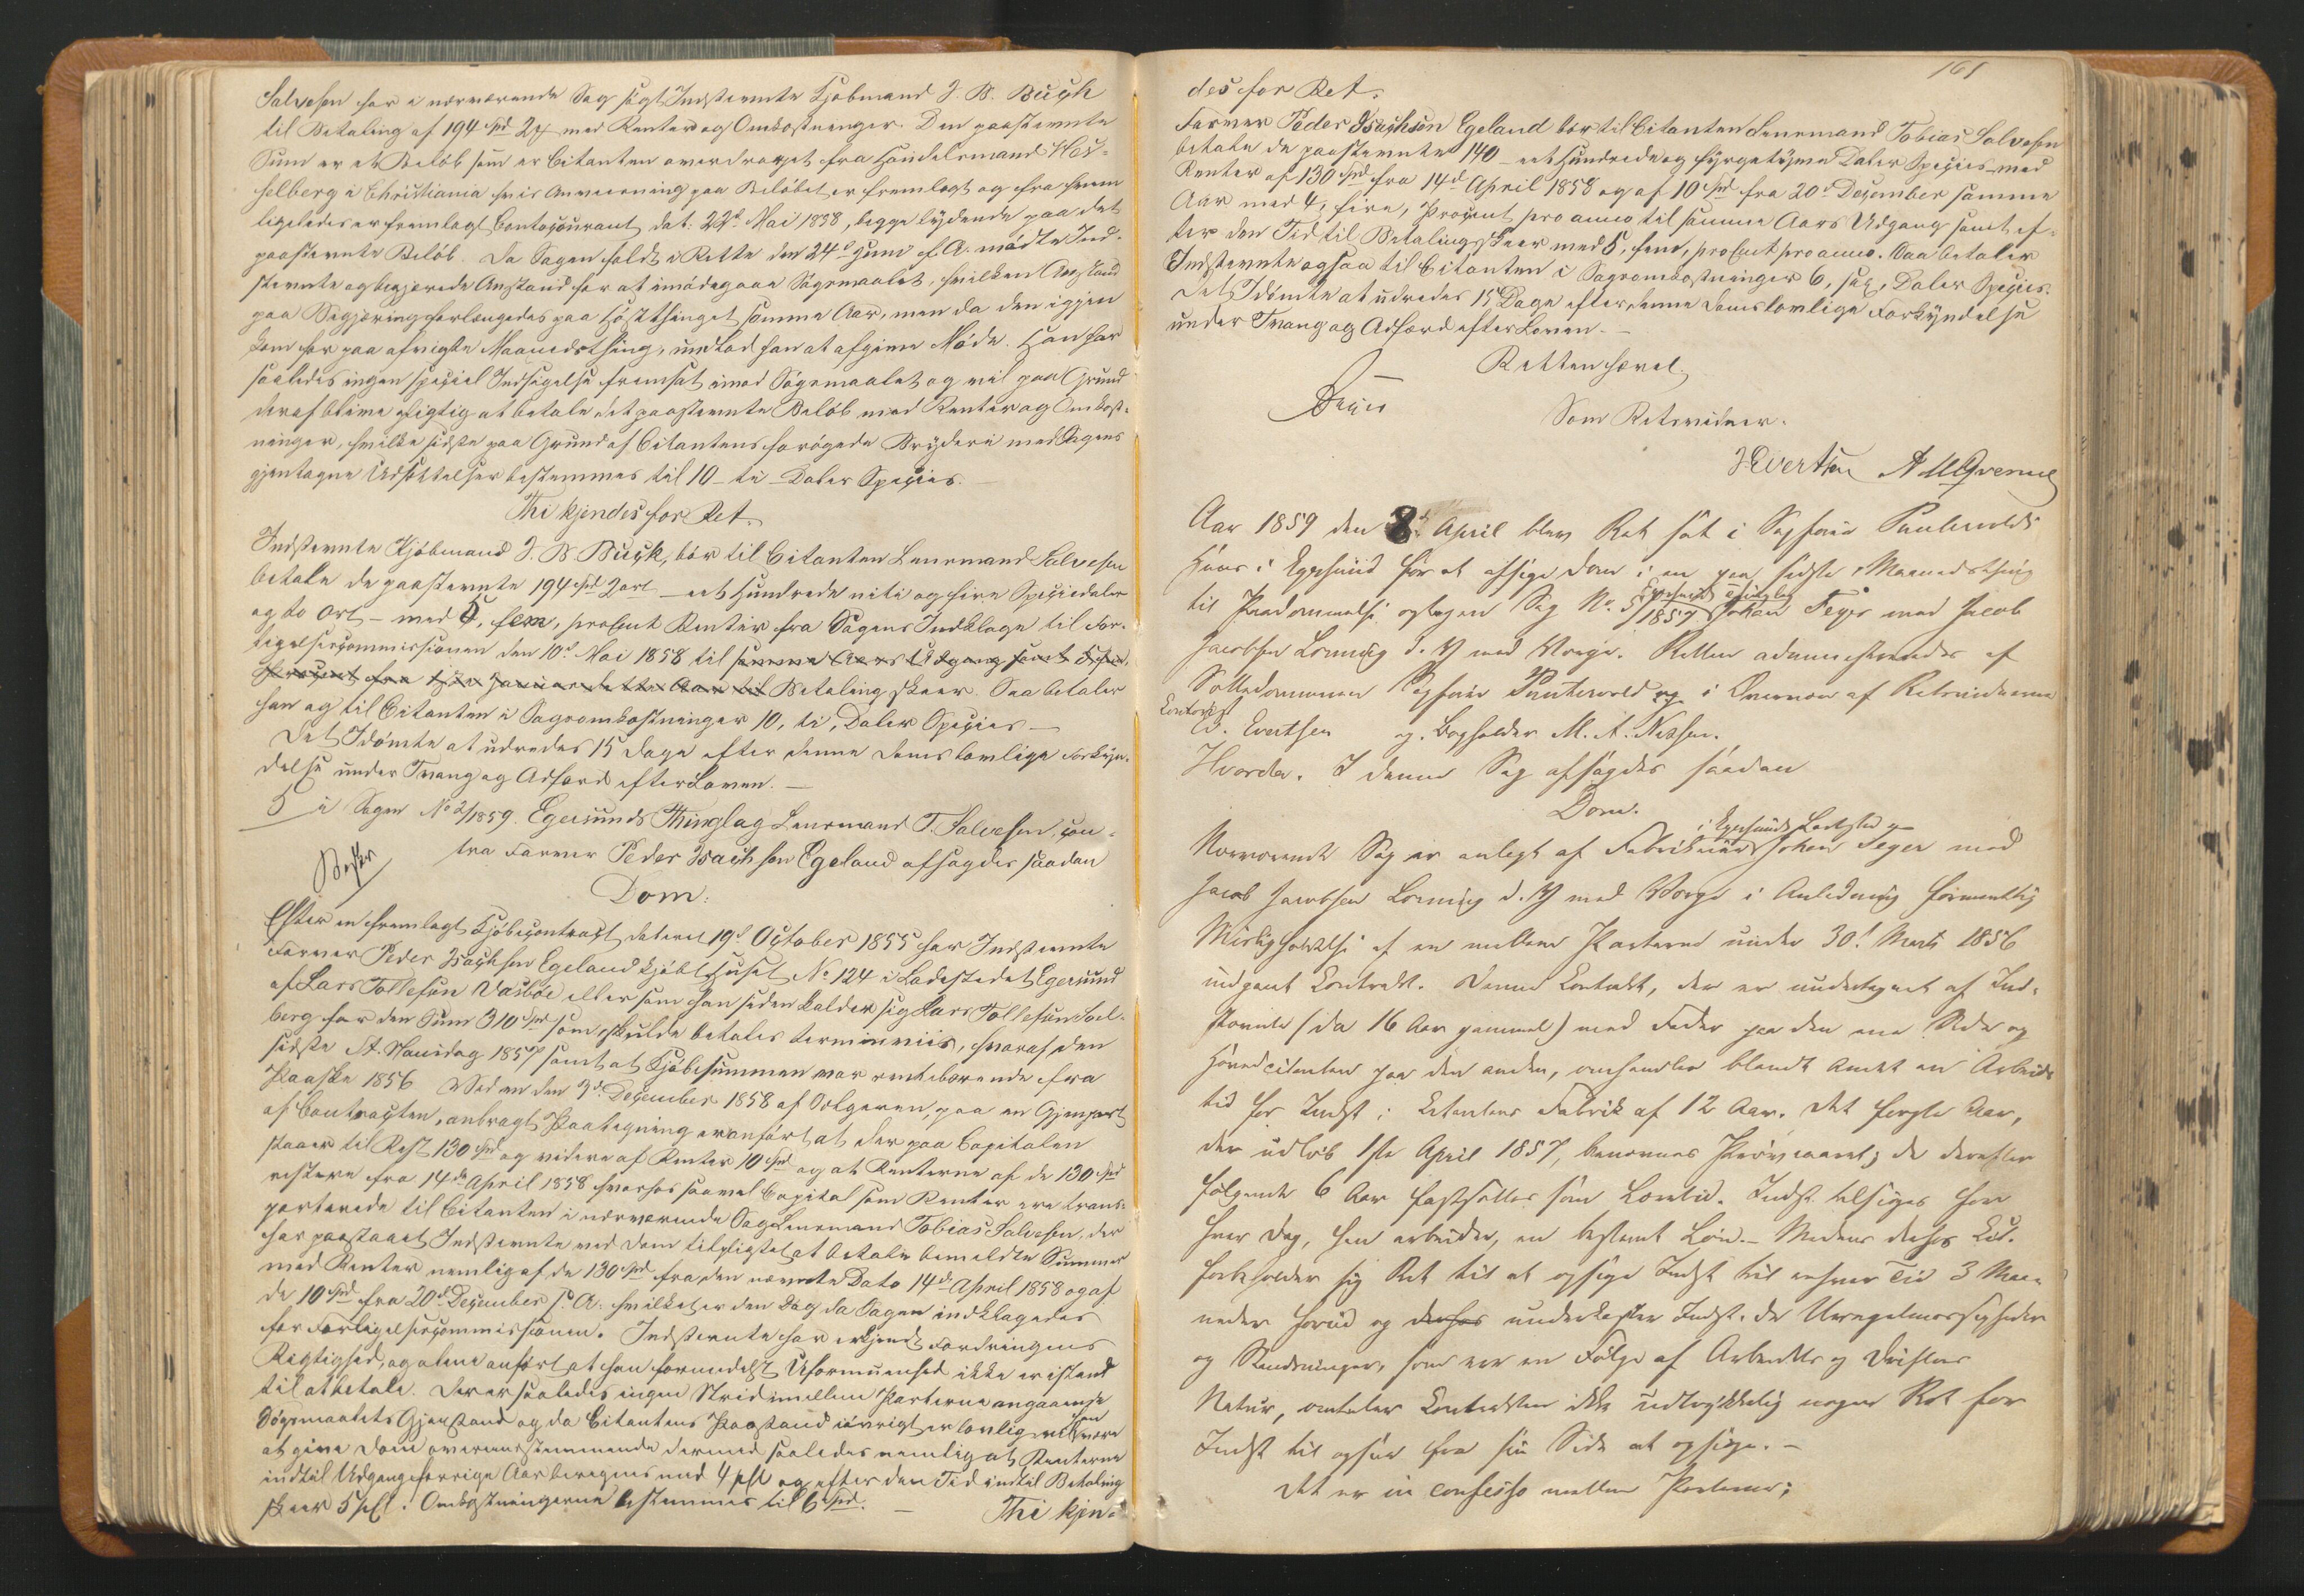 Salvesen har i nærværende Sag sigt. Indstevnte Kjøbmand J. B. Buch
til Betaling af 194 Spd 2 ort med Renter og Omkostninger. Den paastevnte
Sum er et Beløb som er Citanten overdraget fra Handelsmand Has=
selberg i Christiania hvis Anviisning paa Beløbet er fremlagt og fra hvem
ligeledes er fremlagt Contocourant dat: 22d Mai 1858, begge lydende paa det
paastevnte Beløb. Da Sagen faldt i Rette den 24d Juni f. A. mødte Ind-
stevnte og begjærede Anstand for at imødegaae Søgsmaalet, hvilken Anstand
paa Begjæring forlængedes paa Høstthinget samme Aar, men da den igjen
kom for paa afvigte Maanedsthing, undlod han at afgive Møde. Han har
saaledes ingen speciel Indsigelse fremsat imod Søgsmaalet og vil paa Grund
deraf blive pligtig at betale det paastevnte Beløb med Renter og Omkost-
ninger, hvilke sidste paa Grund af Citantens forøgede Bryderi med Sagens
gjentagne Udsættelser bestemmes til 10 - ti - Daler Species.
Thi kjendes for Ret.
Indstevnte Kjøbmand J. B. Buch, bør til Citanten Lensmand Salvesen
betale de paastevnte 194 Spd 2 ort - eet Hundrede niti og fire Speciedaler
og to Ort - med 5, fem, proCent Renter fra Sagens Indklage til For-
ligelsescommissionen den 10d Mai 1858 til samme Aars Udgang samt 5 fem
Procent fra 1ste Januar dette Aar til Betaling skeer. Saa betaler
han og til Citanten i Sagsomkostninger 10, ti, Daler Species -
Det Idømte at udredes 15 Dage efter denne Doms lovlige Forkyn-
delse under Tvang og Adfærd efter Loven. -
5 i Sagen No 2/1859. Egersunds Thinglag Lensmand T. Salvesen, con-
tra Farver Peder Isachsen Egeland afsagdes saadan
Dom:
Efter en fremlagt Kjøbecontract dateret 19d October 1855 har Indstevnte
Farver Peder Isachsen Egeland kjøbt Huset No 124 i Ladestedet Egersund
af Lars Tollefsen Vasbøe eller som han siden kalder sig Lars Tollefsen Sol-
berg for den Sum 310 Spd som skulde betales terminviis, hvoraf den
sidste St. Hansdag 1857 samt at Kjøbesummen var rentebærende fra
Paaske 1856. Ved en den 9d December 1858 af Sælgeren, paa en Gjenpart
af Contracten, anbragt Paategning er anført at der paa Capitalen
staaer til Rest 130 Spd og videre af Renter 10 Spd og at Renterne af de 130 Spd
restere fra 14de April 1858 hvorhos saavel Capital som Renter ere trans-
porterede til Citanten i nærværende Sag Lensmand Tobias Salvesen, der
har paastaaet Indstevnte ved Dom tilpligtet at betale bemeldte Summer
med Renter nemlig af de 130 Spd fra den nævnte Dato 14d April 1858 og af
de 10 Spd fra 20d December s. A. hvilket er den Dag da Sagen indklagedes
for Forligelsescommissionen. Indstevnte har erkjendt Fordringens
Rigtighed, og alene anført at han formedelst Uformuenhed ikke er istand
til at betale. Der er saaledes ingen Strid imellem Parterne angaaende
Søgsmaalets Gjenstand og da Citantens Paastand iøvrigt er lovlig vil være
at give Dom overeensstemmende dermed saaledes nemlig at Renterne
indtil Udgang forrige Aar beregnes med 4 pCt og efter den Tid indtil Betaling
skeer 5 pCt. Omkostningerne bestemmes til 6 Spd. -
Thi kjen=
161
des for Ret.
Farver Peder Isachsen Egeland bør til Citanten Lensmand Tobias Salvesen
betale de paastevnte 140 - eet Hundrede og fyrgetyve Daler Species - med
Renter af 130 Spd fra 14d April 1858 og af 10 Spd fra 20d December samme
Aar med 4, fire, Procent pro anno til samme Aars Udgang samt ef=
ter den Tid til Betaling skeer med 5, fem, proCent pro anno. Saa betaler
Indstevnte ogsaa til Citanten i Sagsomkostninger 6, sex, Daler Species.
Det Idømte at udredes 15 Dage efter denne Doms lovlige Forkyndelse
under Tvang og Adfærd efter Loven. -
Retten hævet.
Som Retsvidner.
Evertsen
Aar 1859 den 8d April blev Ret sat i Sagfører Puntervolds
Huus i Egersund for at afsige Dom i en paa sidste Maanedsthing
Egersunds Thinglag
til Paadømmelse optagen Sag No. 5/1859 Johan Feyer mod Jacob
Jacobsen Lonnig d. y med Værge. Retten administreredes af
Sættedommeren Sagfører Puntervold og i Overvær af Retsvidnerne
Contorist
Evertsen og Bogholder M. A. Nissen.
Hvorda. I denne Sag afsagdes saadan
Dom.
i Egersunds Ladested
Nærværende Sag er anlagt af Fabrikeier Johan Feyer mod
Jacob Jacobsen Lonnig d. y med Værge i Anledning formentlig
Misligholdelse af en mellem Parterne under 30t Marts 1856
indgaaet Contrakt. Denne Contrakt, der er undertegnet af Ind-
stevnte (da 16 Aar gammel) med Fader paa den ene Side og
Hovedcitanten paa den anden, omhandler blandt andet en Arbeids
tid for Indst i Citantens Fabrik af 12 Aar. Det første Aar,
der udløb 1ste April 1857, benævnes Prøveaaret; de derefter
følgende 6 Aar fastsættes som Læretid. Indst tilsiges for
hver Dag, han arbeider, en bestemt Løn. - Medens derhos Cit.
forbeholder sig Ret til at opsige Indst til enhver Tid 3 Maa-
neder forud og derhos underkaster Indst. de Uregelmæssigheder
og Standsninger, som ere en Følge af Arbeidets og Driftens
Natur, omtaler Contrakten ikke udtrykkelig nogen Ret for
Indst til ogsaa fra sin Side at opsige. -
Det er in confesso mellem Parterne;